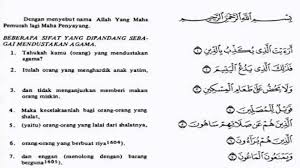 Dengan menyebut nama Allah Yang Maha
Pemurah lagi Maha Penyayang.
BEBERAPA SIFAT YANG DIPANDANG SEBA-
GAI MENDUSTAKAN AGAMA.
1. Tahukah kamu (orang) yang mendustakan
agama?
2. Itulah orang yang menghardik anak yatim,
3. dan tidak menganjurkan memberi makan
orang miskin.
4. Maka kecelakaanlah bagi orang-orang yang
shalat,
5. (yaitu) orang-orang yang lalai dari shalatnya,
6. orang-orang yang berbuat riya1604),
7. dan enggan (menolong dengan) barang
berguna1605).
بِسْمِ اللَّهِ الرَّحْمَٰنِ الرَّحِيمِ
أَرَءَيْتَ الَّذِي يُكَذِّبُ بِالدِّينِ
فَذَٰلِكَ الَّذِي يَدُعُّ الْيَتِيمَ
وَلَا يَحُضُّ عَلَىٰ طَعَامِ الْمِسْكِينِ
فَوَيْلٌ لِّلْمُصَلِّينَ
الَّذِينَ هُمْ عَن صَلَاتِهِمْ سَاهُونَ
الَّذِينَ هُمْ يُرَاءُونَ
وَيَمْنَعُونَ الْمَاعُونَ